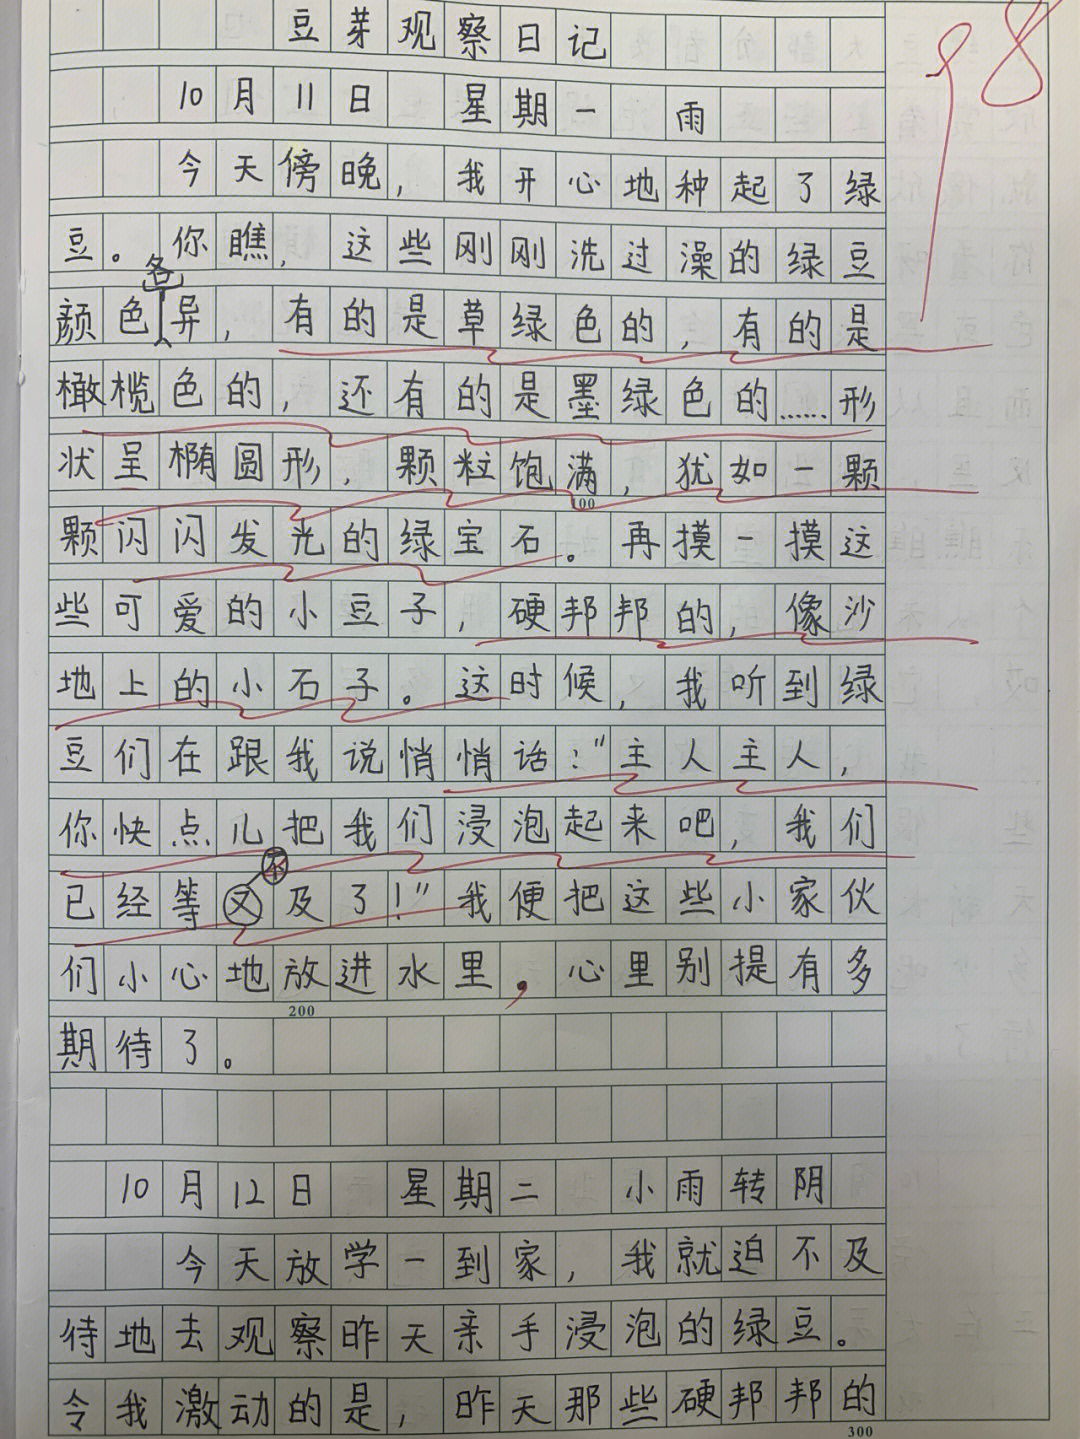 98
豆芽观察日记
10月11日 星期一 雨
今天傍晚，我开心地种起了绿
豆。你瞧，这些刚刚洗过澡的绿豆
颜色各异，有的是草绿色的，有的是
橄榄色的，还有的是墨绿色的……形
状呈椭圆形，颗粒饱满，犹如一颗
100
颗闪闪发光的绿宝石。再摸一摸这
些可爱的小豆子，硬邦邦的，像沙
地上的小石子。这时候，我听到绿
豆们在跟我说悄悄话："主人主人，
你快点儿把我们浸泡起来吧，我们
已经等不及了！"我便把这些小家伙
们小心地放进水里，心里别提有多
200
期待了。
10月12日 星期二 小雨转阴
今天放学一到家，我就迫不及
待地去观察昨天亲手浸泡的绿豆。
令我激动的是，昨天那些硬邦邦的
300